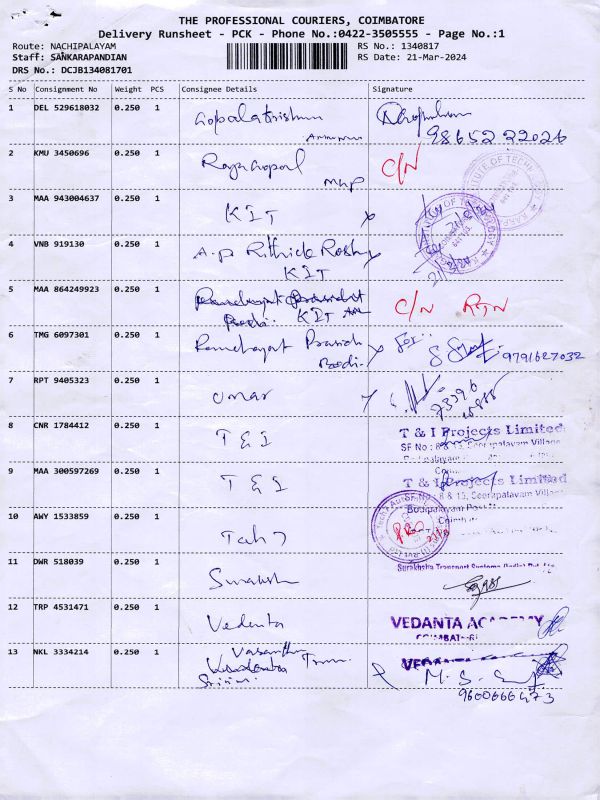 THE PROFESSIONAL COURIERS, COIMBATORE
Delivery Runsheet - PCK - Phone No.:0422-3505555 - Page No.:1
Route: NACHIPALAYAM
RS No.: 1340817
Staff: SANKARAPANDIAN
RS Date: 21-Mar-2024
DRS No.: DCJB134081701
S No Consignment No Weight PCS Consignee Details Signature
1 DEL 529618032 0.250 1 Gopalakrishnan
98652 22026
2 KMU 3450696 0.250 1 Rajagopal C/N
3 MAA 943004637 0.250 1 KIT
4 VNB 919130 0.250 1 A.P Rithick Rosh
KIT
5 MAA 864249923 0.250 1 C/N RTN
KIT
6 TMG 6097301 0.250 1 for
9791627032
7 RPT 9405323 0.250 1 Omar
8 CNR 1784412 0.250 1 T & I T & I Projects Limited
SF No : 8 & 13, Seerapalayam Village
9 MAA 300597269 0.250 1 T & I T & I Projects Limited
SF No : 8 & 13, Seerapalayam Village
10 AWY 1533859 0.250 1
11 DWR 518039 0.250 1
12 TRP 4531471 0.250 1 Vedanta VEDANTA ACADEMY
COIMBATORE
13 NKL 3334214 0.250 1 Vasantha
M. S.
9600666473